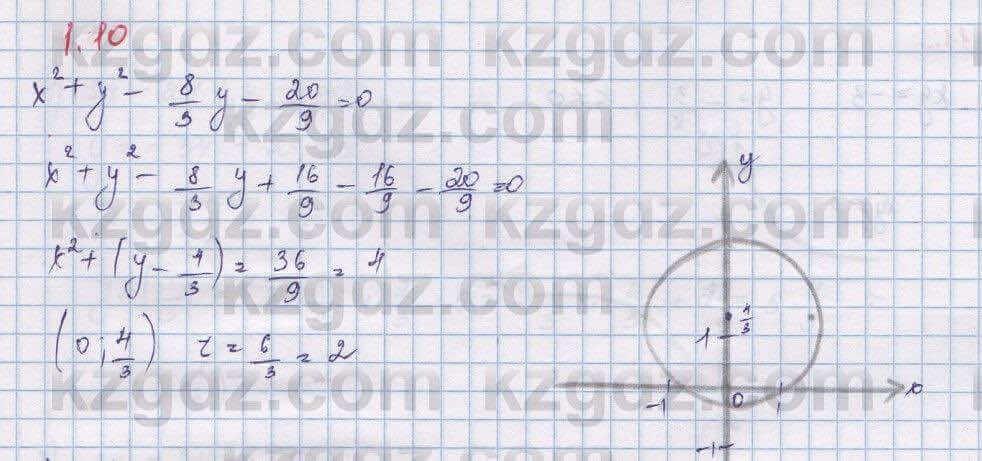 1.10
x² + y² - 8/3 y - 20/9 = 0
x² + y² - 8/3 y + 16/9 - 16/9 - 20/9 = 0
x² + (y - 4/3) = 36/9 = 4
(0; 4/3) r = 6/3 = 2
y
4/3
1
-1 0 1 x
-1
kzgdz.com kzgdz.com
kzgdz.com kzgdz.com
kzgdz.com kzgdz.com
kzgdz.com kzgdz.com
kzgdz.com kzgdz.com
kzgdz.com